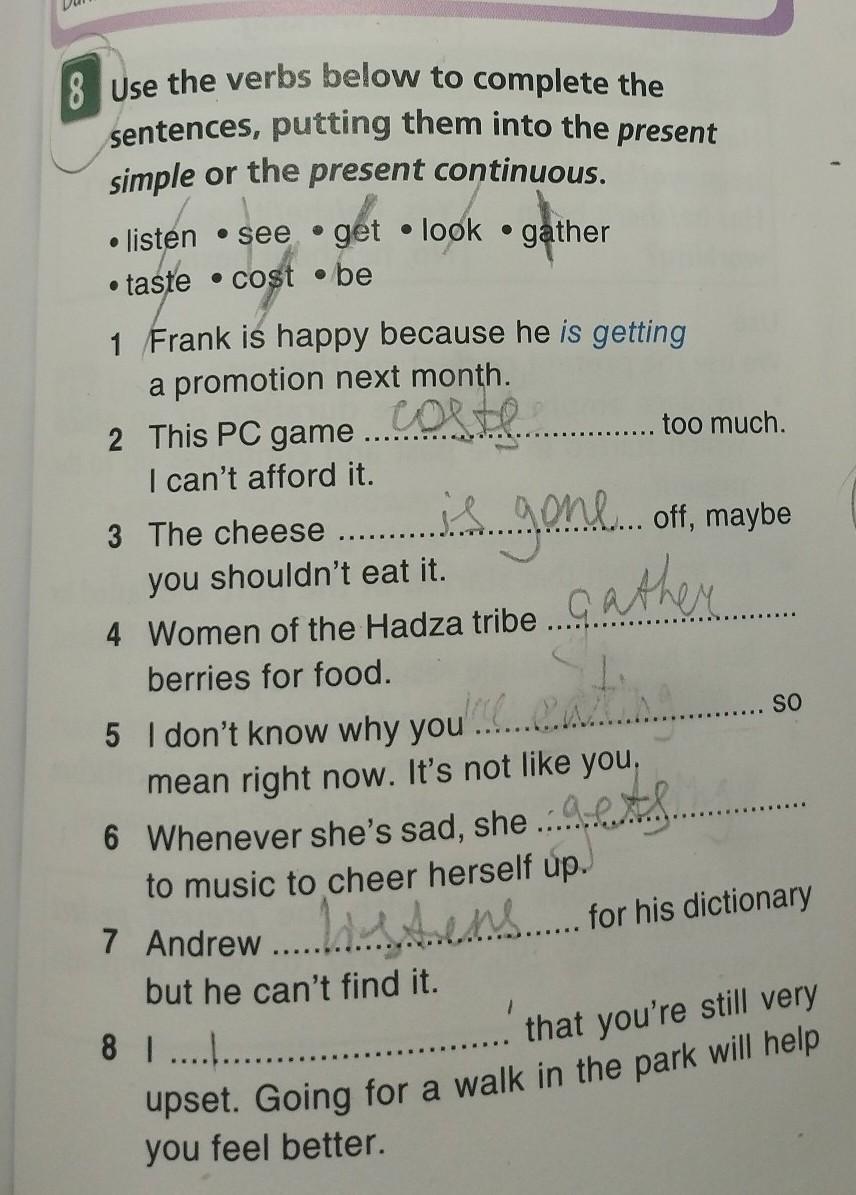 8 Use the verbs below to complete the
sentences, putting them into the present
simple or the present continuous.
• listen • see • get • look • gather
• taste • cost • be
1 Frank is happy because he is getting
a promotion next month.
2 This PC game costs too much.
I can't afford it.
3 The cheese is gone off, maybe
you shouldn't eat it.
4 Women of the Hadza tribe gather
berries for food.
5 I don't know why you eating so
mean right now. It's not like you.
6 Whenever she's sad, she gets
to music to cheer herself up.
7 Andrew listens for his dictionary
but he can't find it.
8 I that you're still very
upset. Going for a walk in the park will help
you feel better.